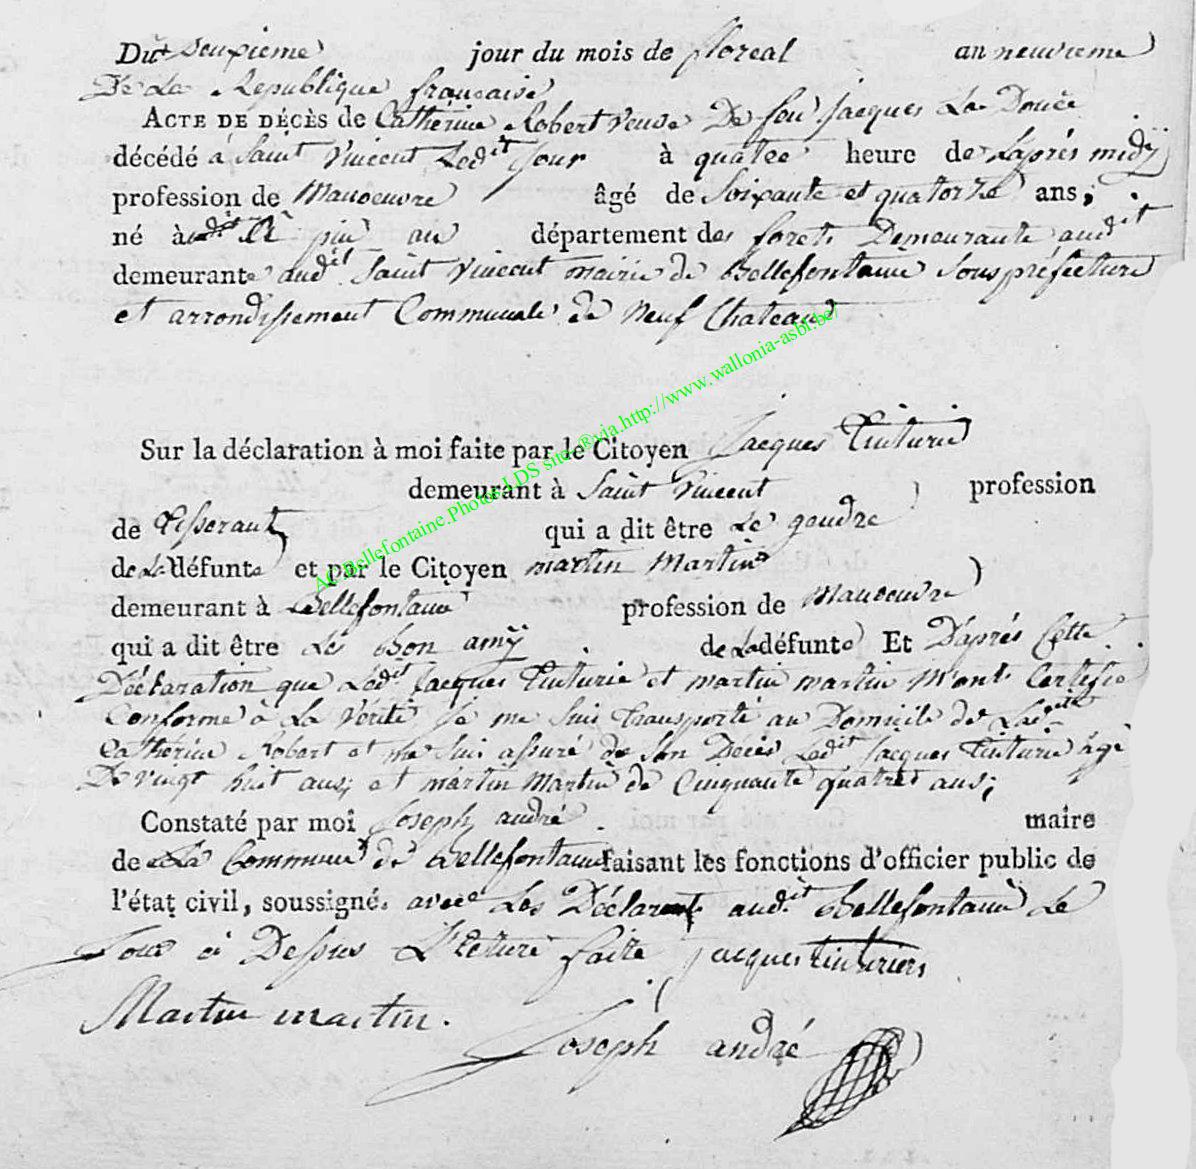 Du Deuxieme jour du mois de floreal an neuvieme
De La Republique française
ACTE DE DÉCÈS de Catherine Robert veuve De feu Jacques La Douce
décédé a Saint Vincent Ledit jour à quatre heure de L'aprés midÿ
profession de Manoeuvre âgé de Soixante et quatorze ans;
né à au département des forets Demeurante audit
demeurante audit Saint Vincent mairie de Bellefontaine Sous préfecture
et arrondissement Communale de Neuf Chateau
Sur la déclaration à moi faite par le Citoyen Jacques Tinturié
demeurant à Saint Vincent profession
de Tisserant qui a dit être Le gendre
de La défunte et par le Citoyen martin Martin
demeurant à Bellefontaine profession de Manoeuvre
qui a dit être Le Bon amÿ de La défunte Et D'aprés Cette
Déclaration que Ledit Jacques Tinturié et martin martin M'ont Certifié
Conforme à La Vérité je me Suis transporté au Domicile de Ladite
Catherine Robert et me Suis assuré de Son Décès Ledit Jacques Tinturié âgé
De vingt huit ans; et martin Martin de Cinquante quatre ans;
Constaté par moi Joseph andré maire
de La Commune de Bellefontaine faisant les fonctions d'officier public de
l'état civil, soussigné avec Les Déclarant audit Bellefontaine Le
Jour ci Dessus Lecture faite jacques tinturiers
Martin martin.
Joseph andré
AC.Bellefontaine.Photos LDS site.®via.http://www.wallonia-asbl.be/